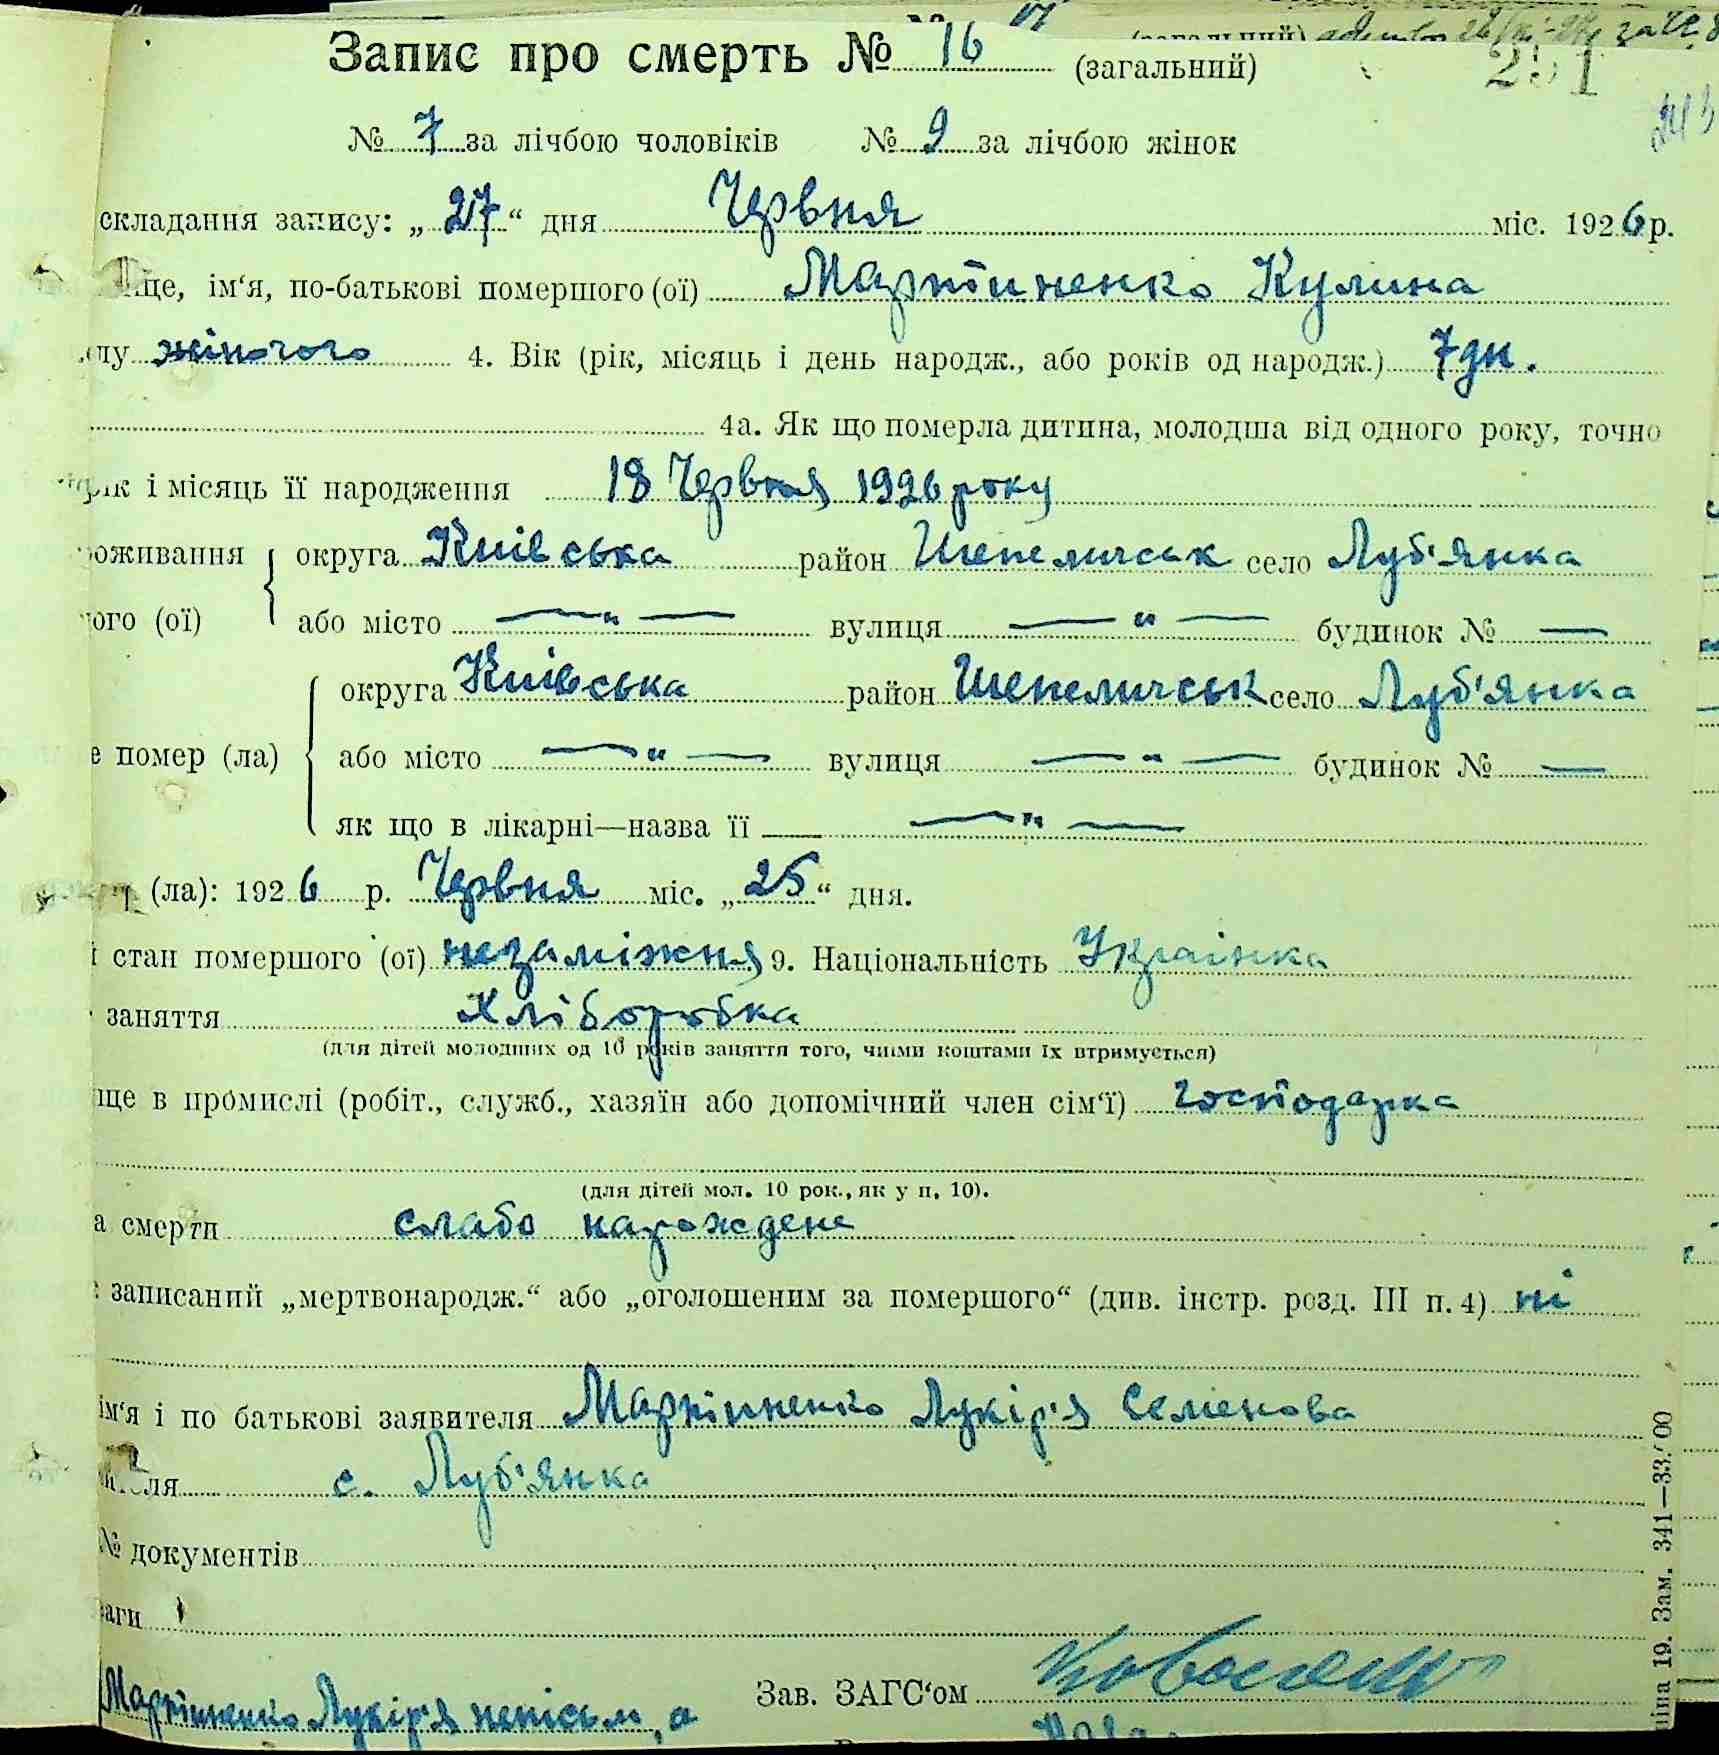 Запис про смерть № 16 (загальний)
251
№ 7 за лічбою чоловіків № 9 за лічбою жінок
складання запису: „27“ дня Червня міс. 1926 р.
ще, ім‘я, по-батькові помершого (ої) Мартиненко Кулина
лу жіночого 4. Вік (рік, місяць і день народж., або років од народж.) 7 дн.
4а. Як що померла дитина, молодша від одного року, точно
рік і місяць її народження 18 Червня 1926 року
оживання округа Київська район Шепелическ село Луб'янка
ого (ої) або місто — „ — вулиця — „ — будинок № —
округа Київська район Шепеличськ село Луб'янка
е помер (ла) або місто — „ — вулиця — „ — будинок № —
як що в лікарні—назва її — „ —
(ла): 1926 р. Червня міс. „25“ дня.
стан помершого (ої) незаміжня 9. Національність Українка
заняття Хліборобка
(для дітей молодших од 10 років заняття того, чиїми коштами їх втримується)
ще в промислі (робіт., служб., хазяїн або допомічний член сім‘ї) господарка
(для дітей мол. 10 рок., як у п. 10).
а смерти слабо нарождене
записаний „мертвонародж.“ або „оголошеним за помершого“ (див. інстр. розд. III п. 4) ні
ім‘я і по батькові заявителя Мартиненко Лукір'я Семенова
ля с. Луб'янка
№ документів
аги
Зав. ЗАГС‘ом
Мартиненко Лукір'я неписьм, а
19. Зам. 341—33